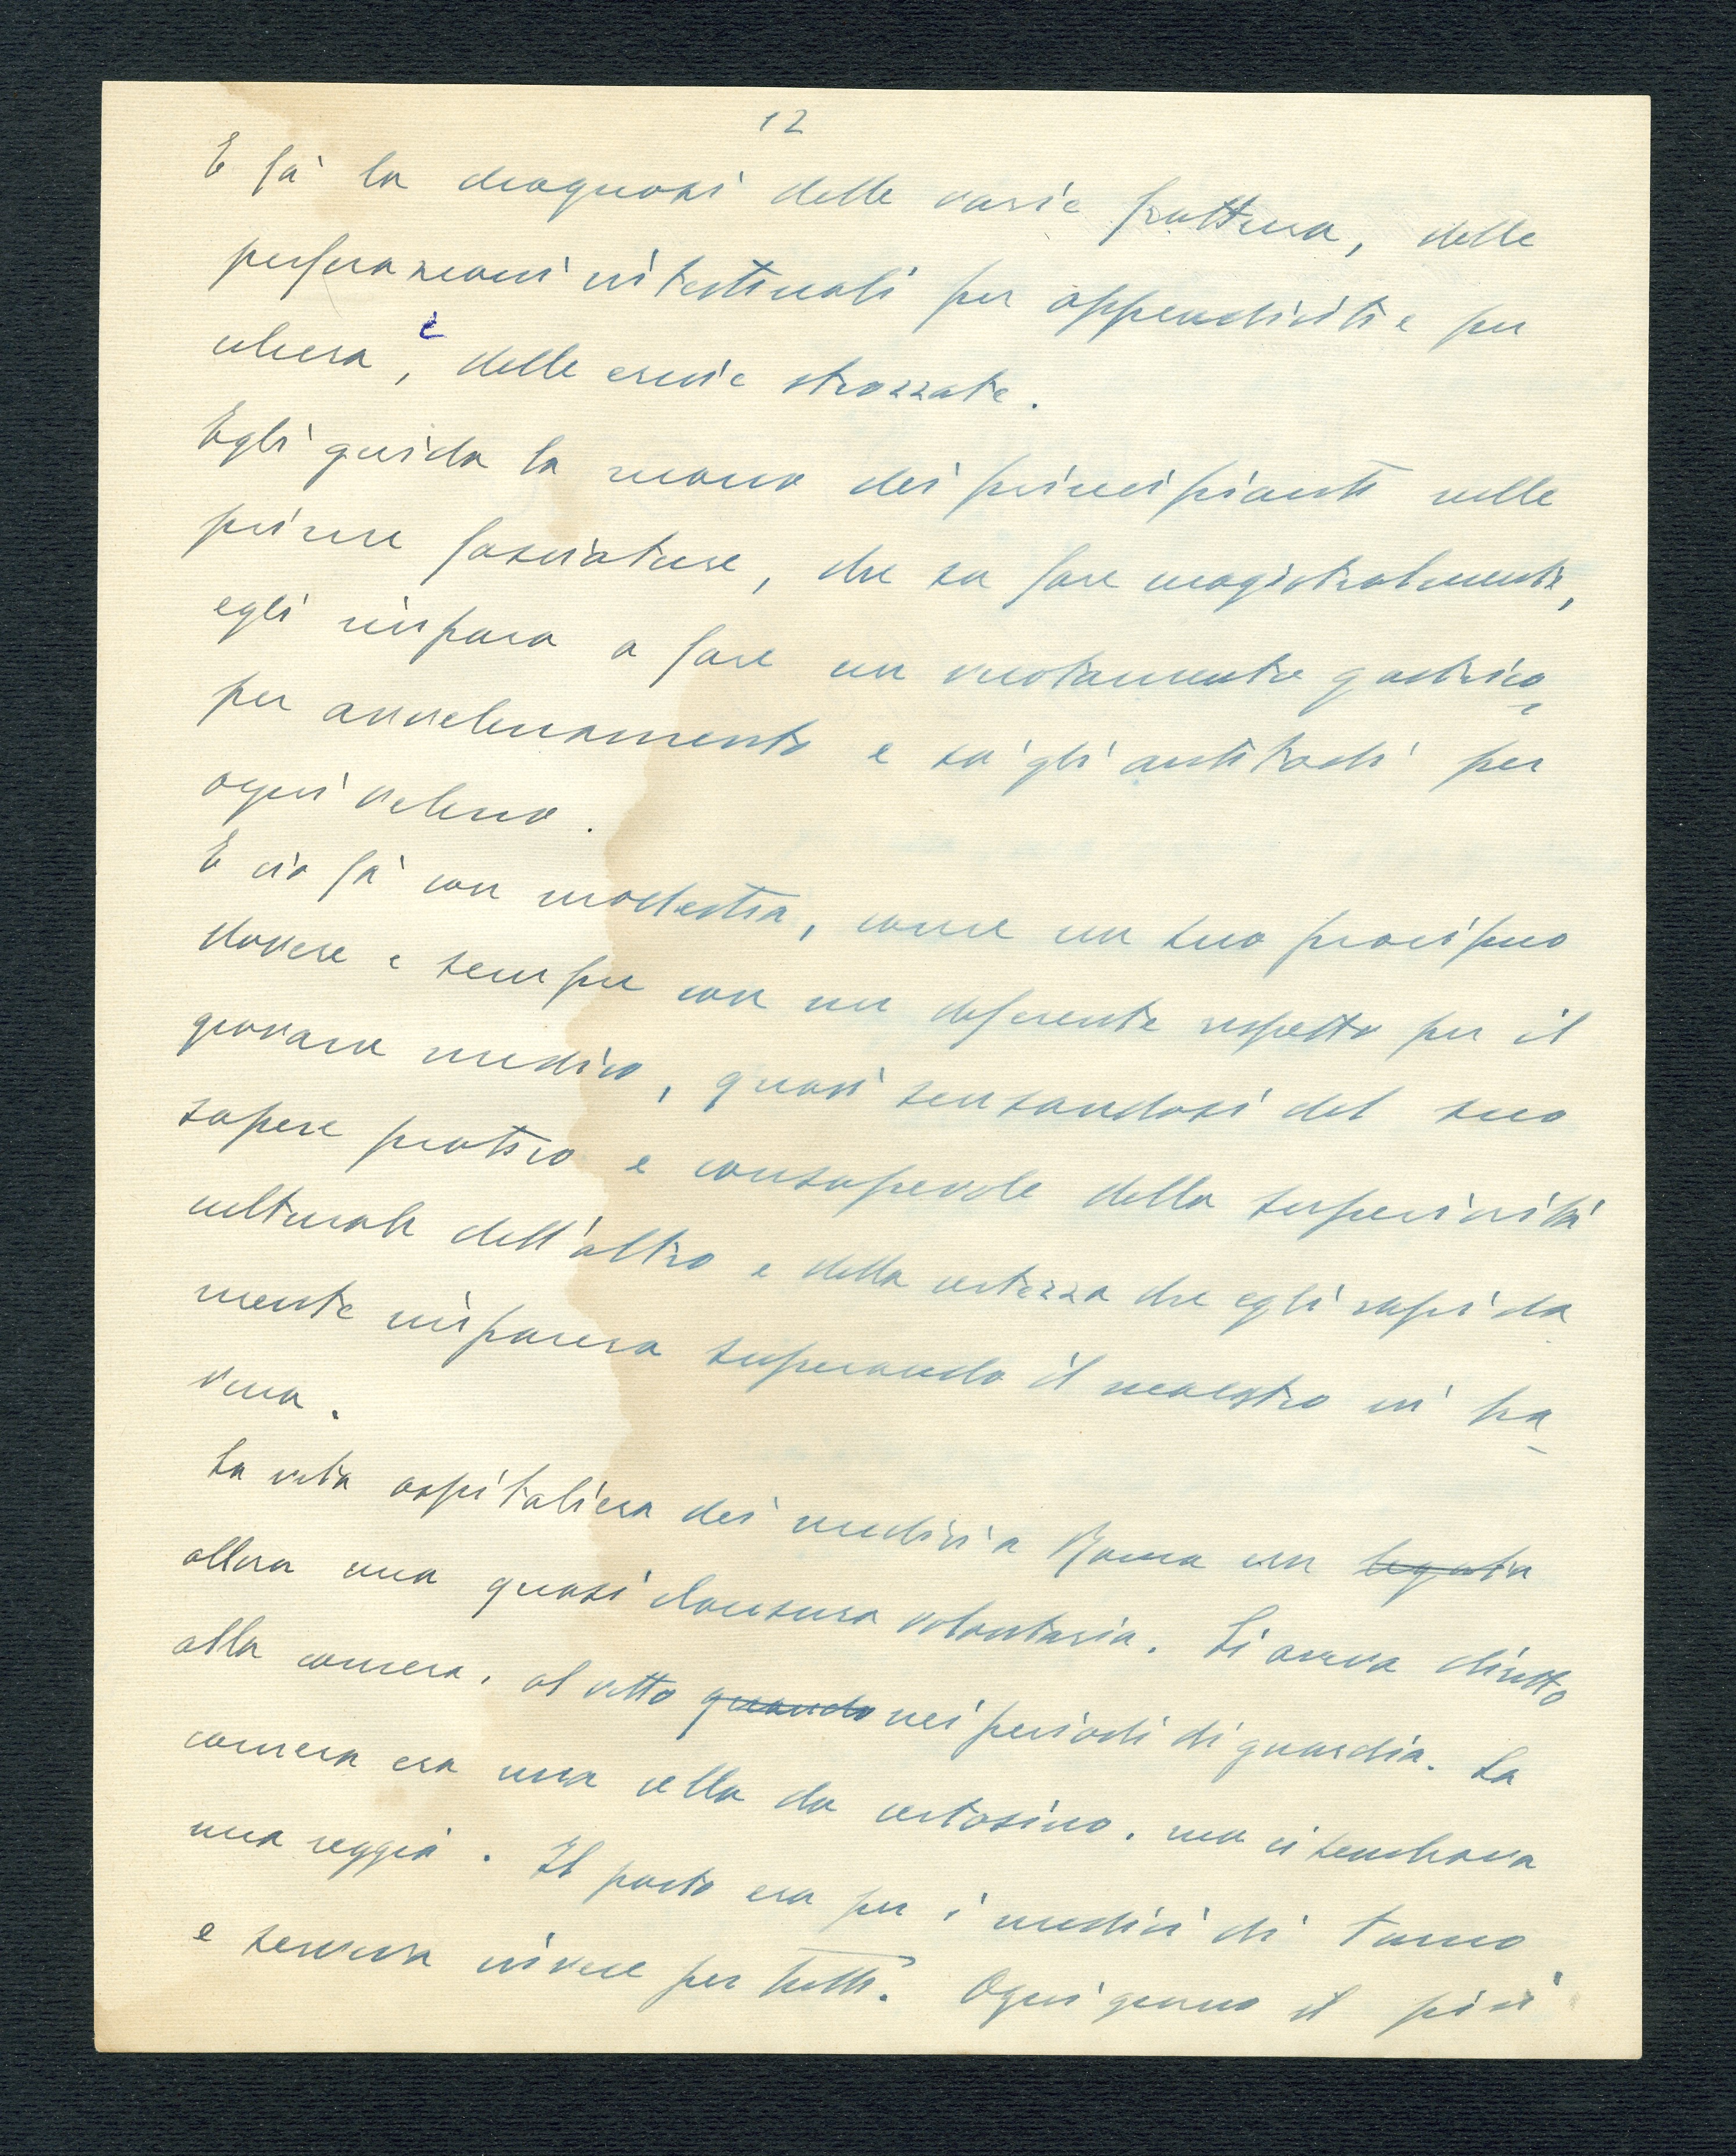 12
E fà la diagnosi delle varie frattura, delle
perforazioni intestinali per appendicite e per
ulcera, e delle ernie strozzate.
Egli guida la mano dei principianti nelle
prime fasciature, che sa fare magistralmente,
egli impara a fare un vuotamento gastrico
per avvelenamento e sà gli antitodi per
ogni veleno.
E ciò fà con modestia, come un suo precipuo
dovere e sempre con un deferente rispetto per il
giovane medico, quasi scusandosi del suo
sapere pratico e consapevole della superiorità
culturale dell'altro e della certezza che egli rapida
mente imparerà superando il maestro in bra-
vura.
La vita ospitaliera dei medici a Roma era legata
allora una quasi clausura volontaria. Si aveva diritto
alla camera, al vitto quando nei periodi di guardia. La
camera era una cella da certosino, ma ci sembrava
una reggia. Il pasto era per i medici di turno
e serviva invece per tutti. Ogni giorno il più